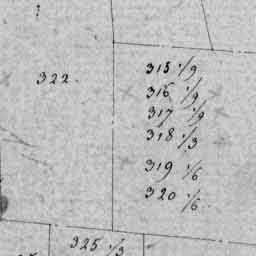 322.
315 1/9
316 1/9
317 1/9
318 1/3
319 1/6
320 1/6
325 1/3